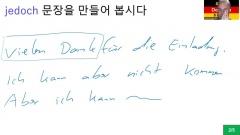 jedoch 문장을 만들어 봅시다
Vielen Dank für die Einladung.
ich kann aber nicht kommen
Aber ich kann
2/5